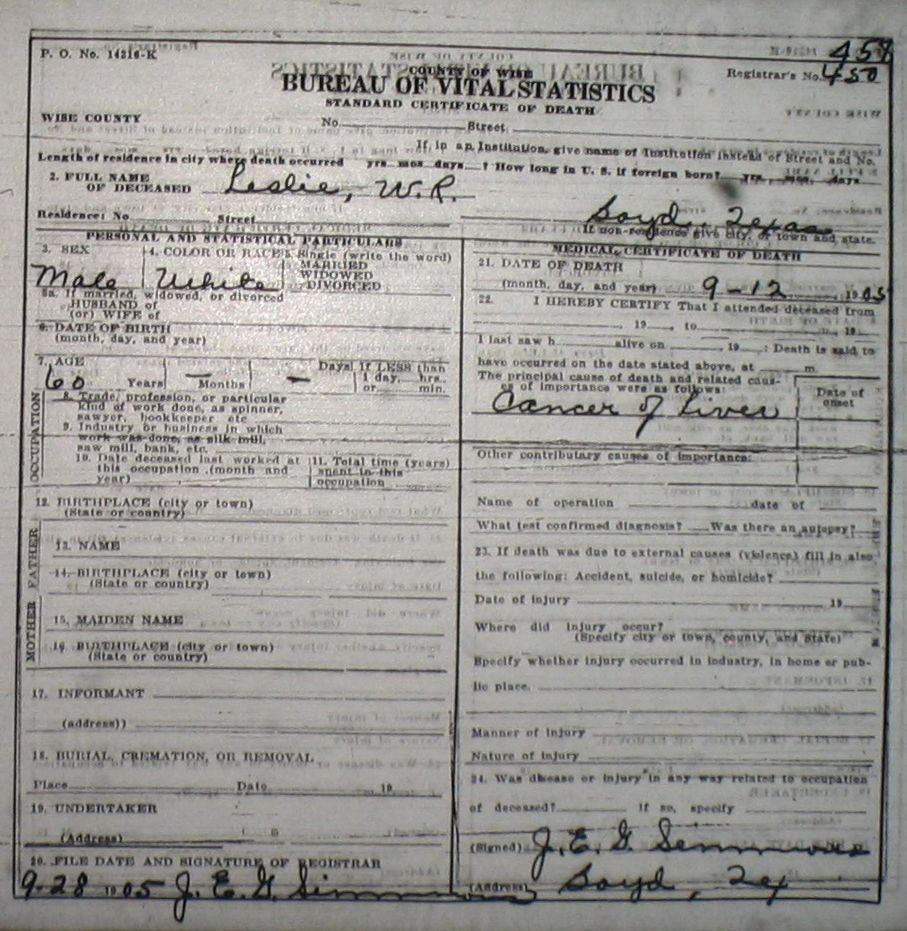 P. O. No. 14216-K
458
Registrar's No. 450
COUNTY OF WISE
BUREAU OF VITAL STATISTICS
STANDARD CERTIFICATE OF DEATH
WISE COUNTY No. Street
If in an Institution, give name of Institution instead of Street and No.
Length of residence in city where death occurred yrs. mos days ? How long in U. S. if foreign born? yrs. mos. days
2. FULL NAME OF DECEASED Leslie, W.R.
Residence: No Street Boyd, Texas
If non-residence give city or town and state.
PERSONAL AND STATISTICAL PARTICULARS
3. SEX
4. COLOR OR RACE
5. Single (write the word)
MARRIED
WIDOWED
DIVORCED
Male White
5a. If married, widowed, or divorced
HUSBAND of
(or) WIFE of
6. DATE OF BIRTH
(month, day, and year)
7. AGE
Days If LESS than
60 Years — Months — 1 day, hrs.
or min.
OCCUPATION
8. Trade, profession, or particular
kind of work done, as spinner,
sawyer, bookkeeper etc
9. Industry or business in which
work was done, as silk mill,
saw mill, bank, etc.
10. Date deceased last worked at
this occupation (month and
year)
11. Total time (years)
spent in this
occupation
12. BIRTHPLACE (city or town)
(State or country)
FATHER
13. NAME
14. BIRTHPLACE (city or town)
(State or country)
MOTHER
15. MAIDEN NAME
16. BIRTHPLACE (city or town)
(State or country)
17. INFORMANT
(address))
18. BURIAL, CREMATION, OR REMOVAL
Place Date 19
19. UNDERTAKER
(Address)
20. FILE DATE AND SIGNATURE OF REGISTRAR
9-28 1905 J. E. G. Simmons
MEDICAL CERTIFICATE OF DEATH
21. DATE OF DEATH
(month, day, and year) 9-12 1905
22. I HEREBY CERTIFY That I attended deceased from
, 19 , to , 19
I last saw h alive on , 19 : Death is said to
have occurred on the date stated above, at m.
The principal cause of death and related caus-
es of importance were as follows:
Date of
onset
Cancer of Liver
Other contributary causes of importance:
Name of operation date of
What test confirmed diagnosis? Was there an autopsy?
23. If death was due to external causes (violence) fill in also
the following: Accident, suicide, or homicide?
Date of injury 19
Where did injury occur?
(Specify city or town, county, and State)
Specify whether injury occurred in industry, in home or pub-
lic place.
Manner of injury
Nature of injury
24. Was disease or injury in any way related to occupation
of deceased? If so, specify
(Signed) J. E. G. Simmons
(Address) Boyd, Tex